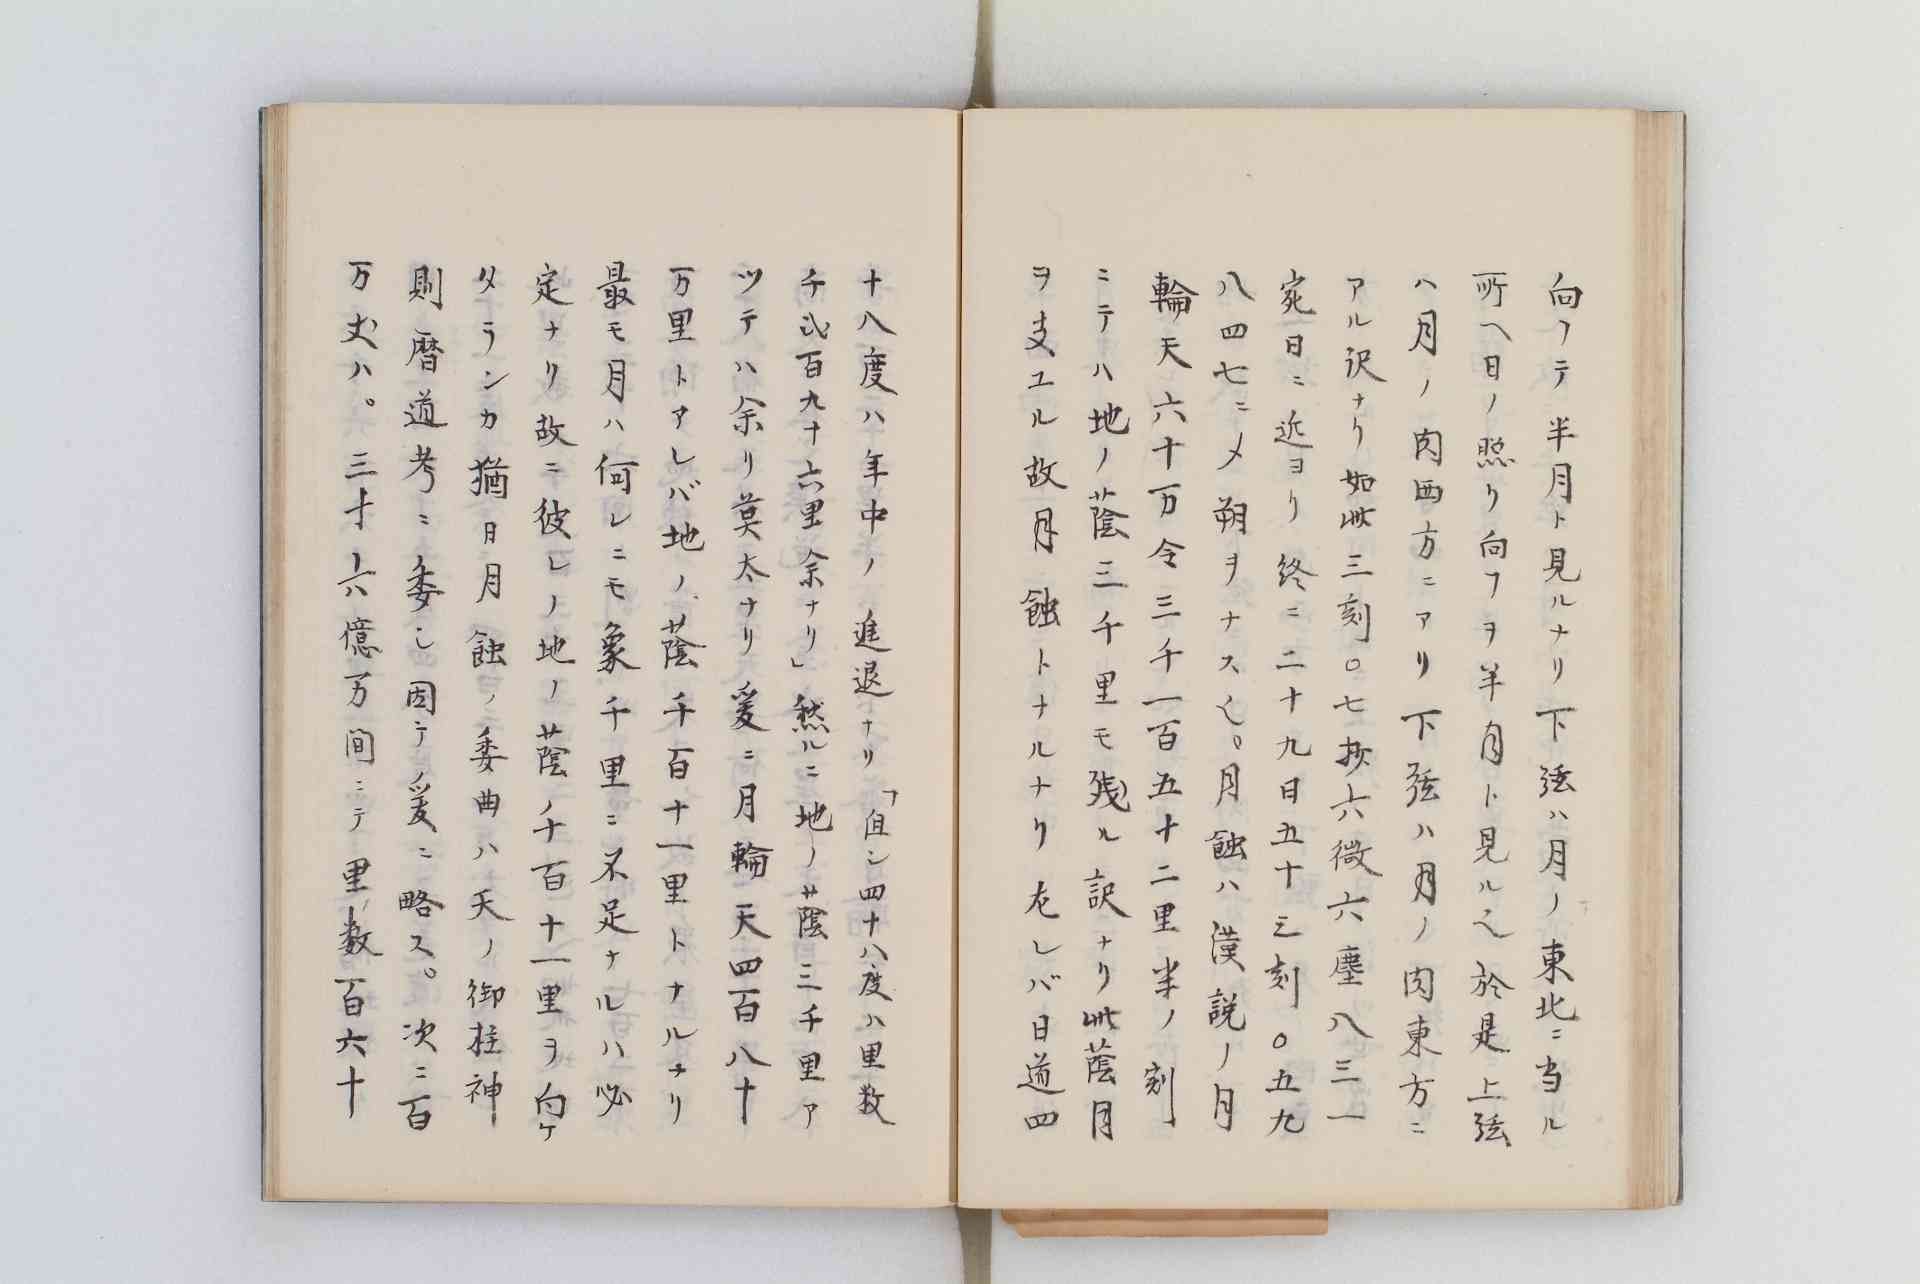 向フテ半月ト見ルナリ下弦ハ月ノ東北ニ当ル
所ヘ日ノ照リ向フヲ半月ト見ル也於是上弦
ハ月ノ肉西方ニアリ下弦ハ月ノ肉東方ニ
アル訳ナリ如此三刻〇七抄六微六塵八三一
宛日ニ近ヨリ終ニ二十九日五十三刻〇五九
八四七ニメ朔ヲナス也。月蝕ハ漢説ノ月
輪天六十万令三千一百五十二里半ノ刻
ニテハ地ノ蔭三千里モ残ル訳ナリ此蔭月
ヲ支ユル故月蝕トナルナリ左レバ日道四
十八度ハ年中ノ進退ナリ「但シ四十八度ハ里数
千弐百九十六里余ナリ」然ルニ地ノ蔭三千里ア
ツテハ余リ莫太ナリ爰ニ月輪天四百八十
万里トアレバ地ノ蔭千百十一里トナルナリ
最モ月ハ何レニモ象千里ニ不足ナルハ必
定ナリ故ニ彼レノ地ノ蔭ノ千百十一里ヲ向ケ
タランカ猶日月蝕ノ委曲ハ天ノ御柱神
則暦道考ニ委し因テ爰ニ略ス。次ニ百
万丈ハ。三十六億万間ニテ里ノ数百六十